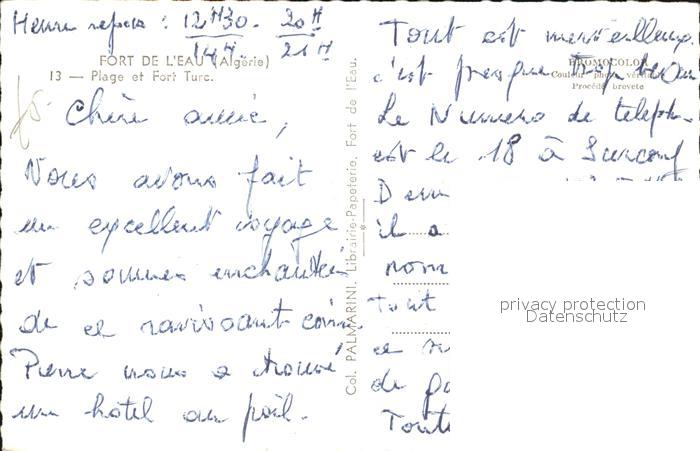 Heure repas : 12H30 - 20H
14H 21H
FORT DE L'EAU (Algérie)
13 — Plage et Fort Turc.
Chère amie,
Nous avons fait
un excellent voyage
et sommes enchantés
de ce ravissant coin.
Pierre nous a trouvé
un hôtel au poil.
Col. PALMARINI, Librairie-Papeterie, Fort de l'Eau.
Tout est merveilleux
PROMOCOLOR
c'est presque trop beau
Procédé breveté
Le Numero de teleph.
est le 18 à Surcouf
il a
nom
Tout
privacy protection
Datenschutz
ce
de
Toute